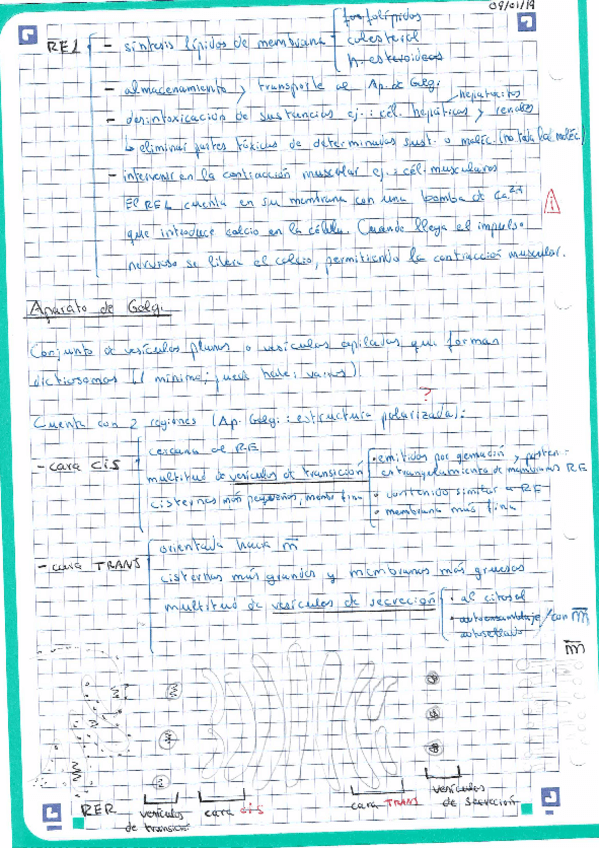 09/01/19
REL
- síntesis lípidos de membrana
fosfolípidos
colesterol
h. esteroideas
- almacenamiento y transporte al Ap. de Golgi
- desintoxicación de sustancias ej.: cél. hepáticas y renales
hepatocitos
↳ eliminar partes tóxicas de determinadas sust. o moléc. (no toda la moléc.)
- intervenir en la contracción muscular ej.: cél. musculares
El REL cuenta en su membrana con una bomba de Ca²⁺
que introduce calcio en la célula. Cuando llega el impulso
nervioso se libera el calcio, permitiendo la contracción muscular.
Aparato de Golgi
Conjunto de vesículas planas o vesículas apiladas que forman
dictiosomas (1 mínimo; puede haber varios)
?
Cuenta con 2 regiones (Ap. Golgi: estructura polarizada):
- cara cis
cercana al RE
multitud de vesículas de transición
cisternas más pequeñas, membr. fina
• emitidas por gemación y posterior
estrangulamiento de membranas RE
• contenido similar a RE
• membrana más fina
- cara TRANS
orientada hacia m
cisternas más grandes y membranas más gruesas
multitud de vesículas de secreción
• al citosol
• autoensamblaje / con m
autosellado
m
RER
vesículas
de transición
cara cis
cara TRANS
vesículas
de secreción